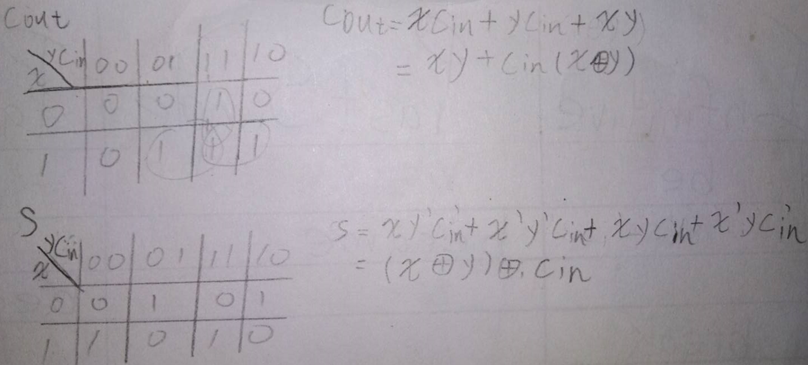 Cout
yCin 00 01 11 10
x
0 0 0 1 0
1 0 1 1 1
Cout = xCin + yCin + xy
= xy + Cin(x⊕y)
S
yCin 00 01 11 10
x
0 0 1 0 1
1 1 0 1 0
S = xy'Cin' + x'y'Cin + xyCin + x'yCin'
= (x⊕y)⊕Cin